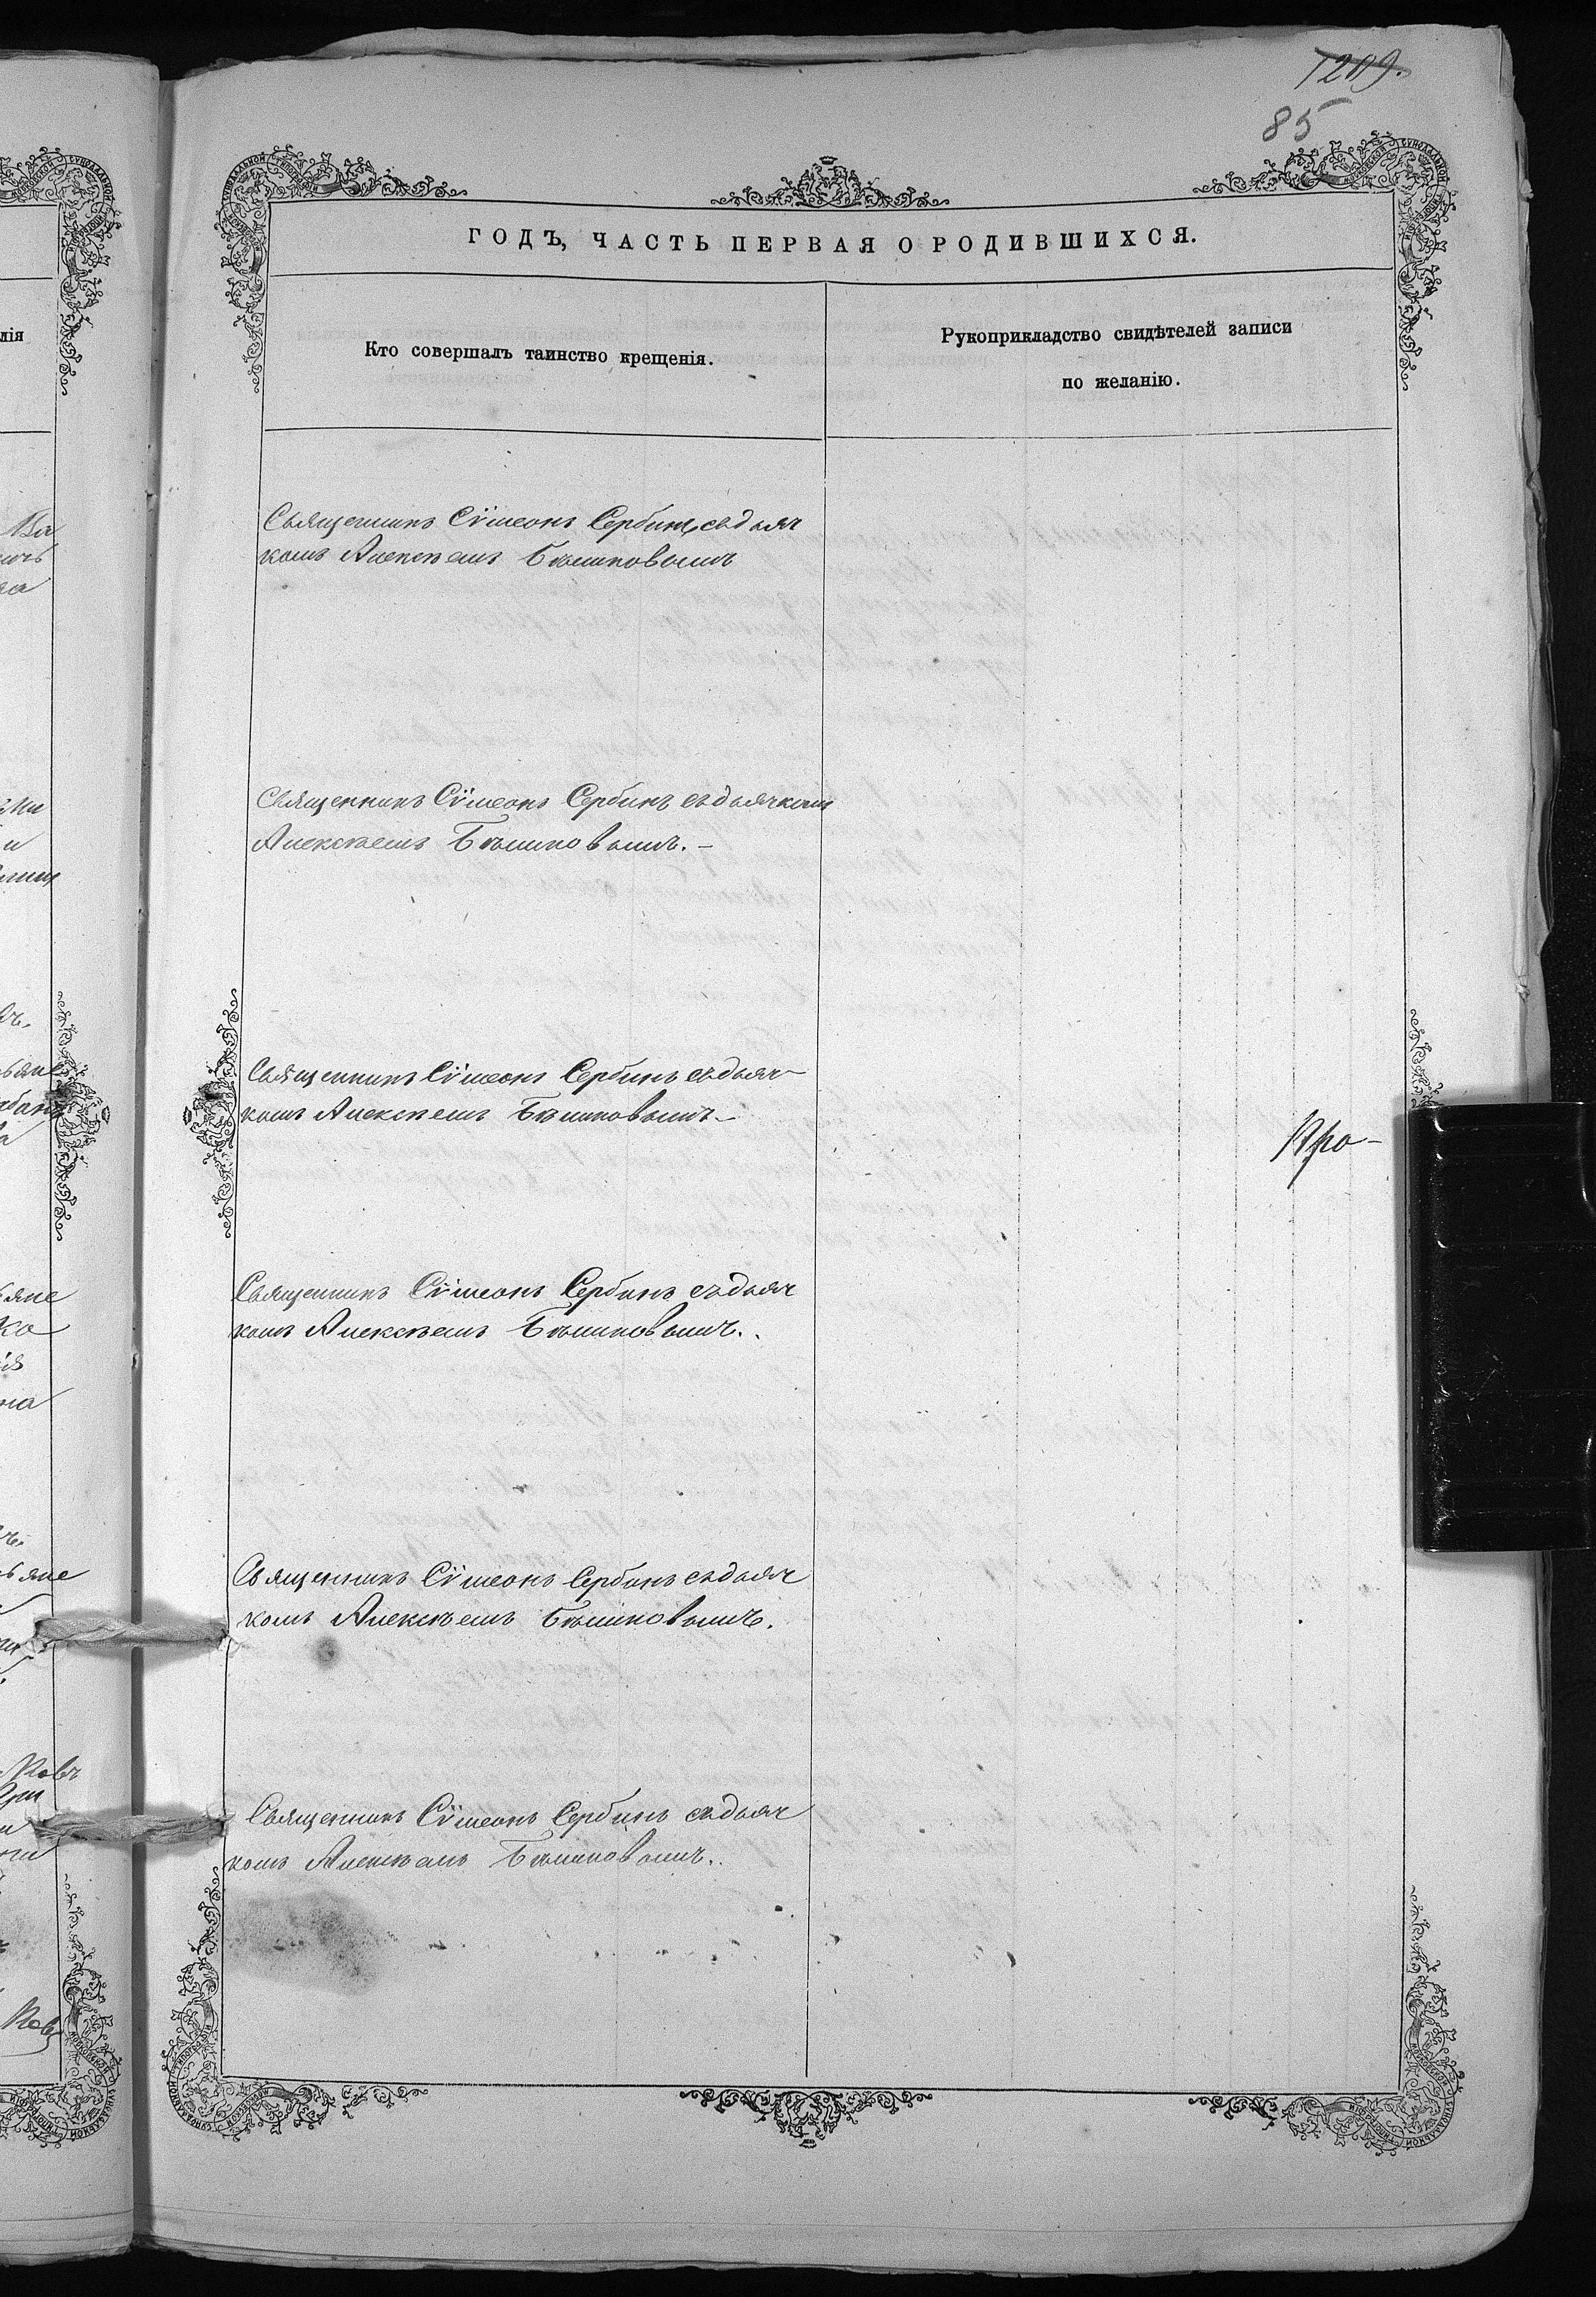 1209.
85
ГОДЪ, ЧАСТЬ ПЕРВАЯ О РОДИВШИХСЯ.
Кто совершалъ таинство крещенія.
Рукоприкладство свидѣтелей записи
по желанію.
Священникъ Сѵмеонъ Сербинъ съ дьяч
комъ Алексѣемъ Бѣликовымъ
Священникъ Сѵмеонъ Сербинъ съ дьячкомъ
Алексѣемъ Бѣликовымъ. -
Священникъ Сѵмеонъ Сербинъ съ дьяч-
комъ Алексѣемъ Бѣликовымъ -
Про-
Священникъ Сѵмеонъ Сербинъ съ дьяч
комъ Алексѣемъ Бѣликовымъ.
Священникъ Сѵмеонъ Сербинъ съ дьяч
комъ Алексѣемъ Бѣликовымъ.
Священникъ Сѵмеонъ Сербинъ съ дьяч
комъ Алексѣемъ Бѣликовымъ.